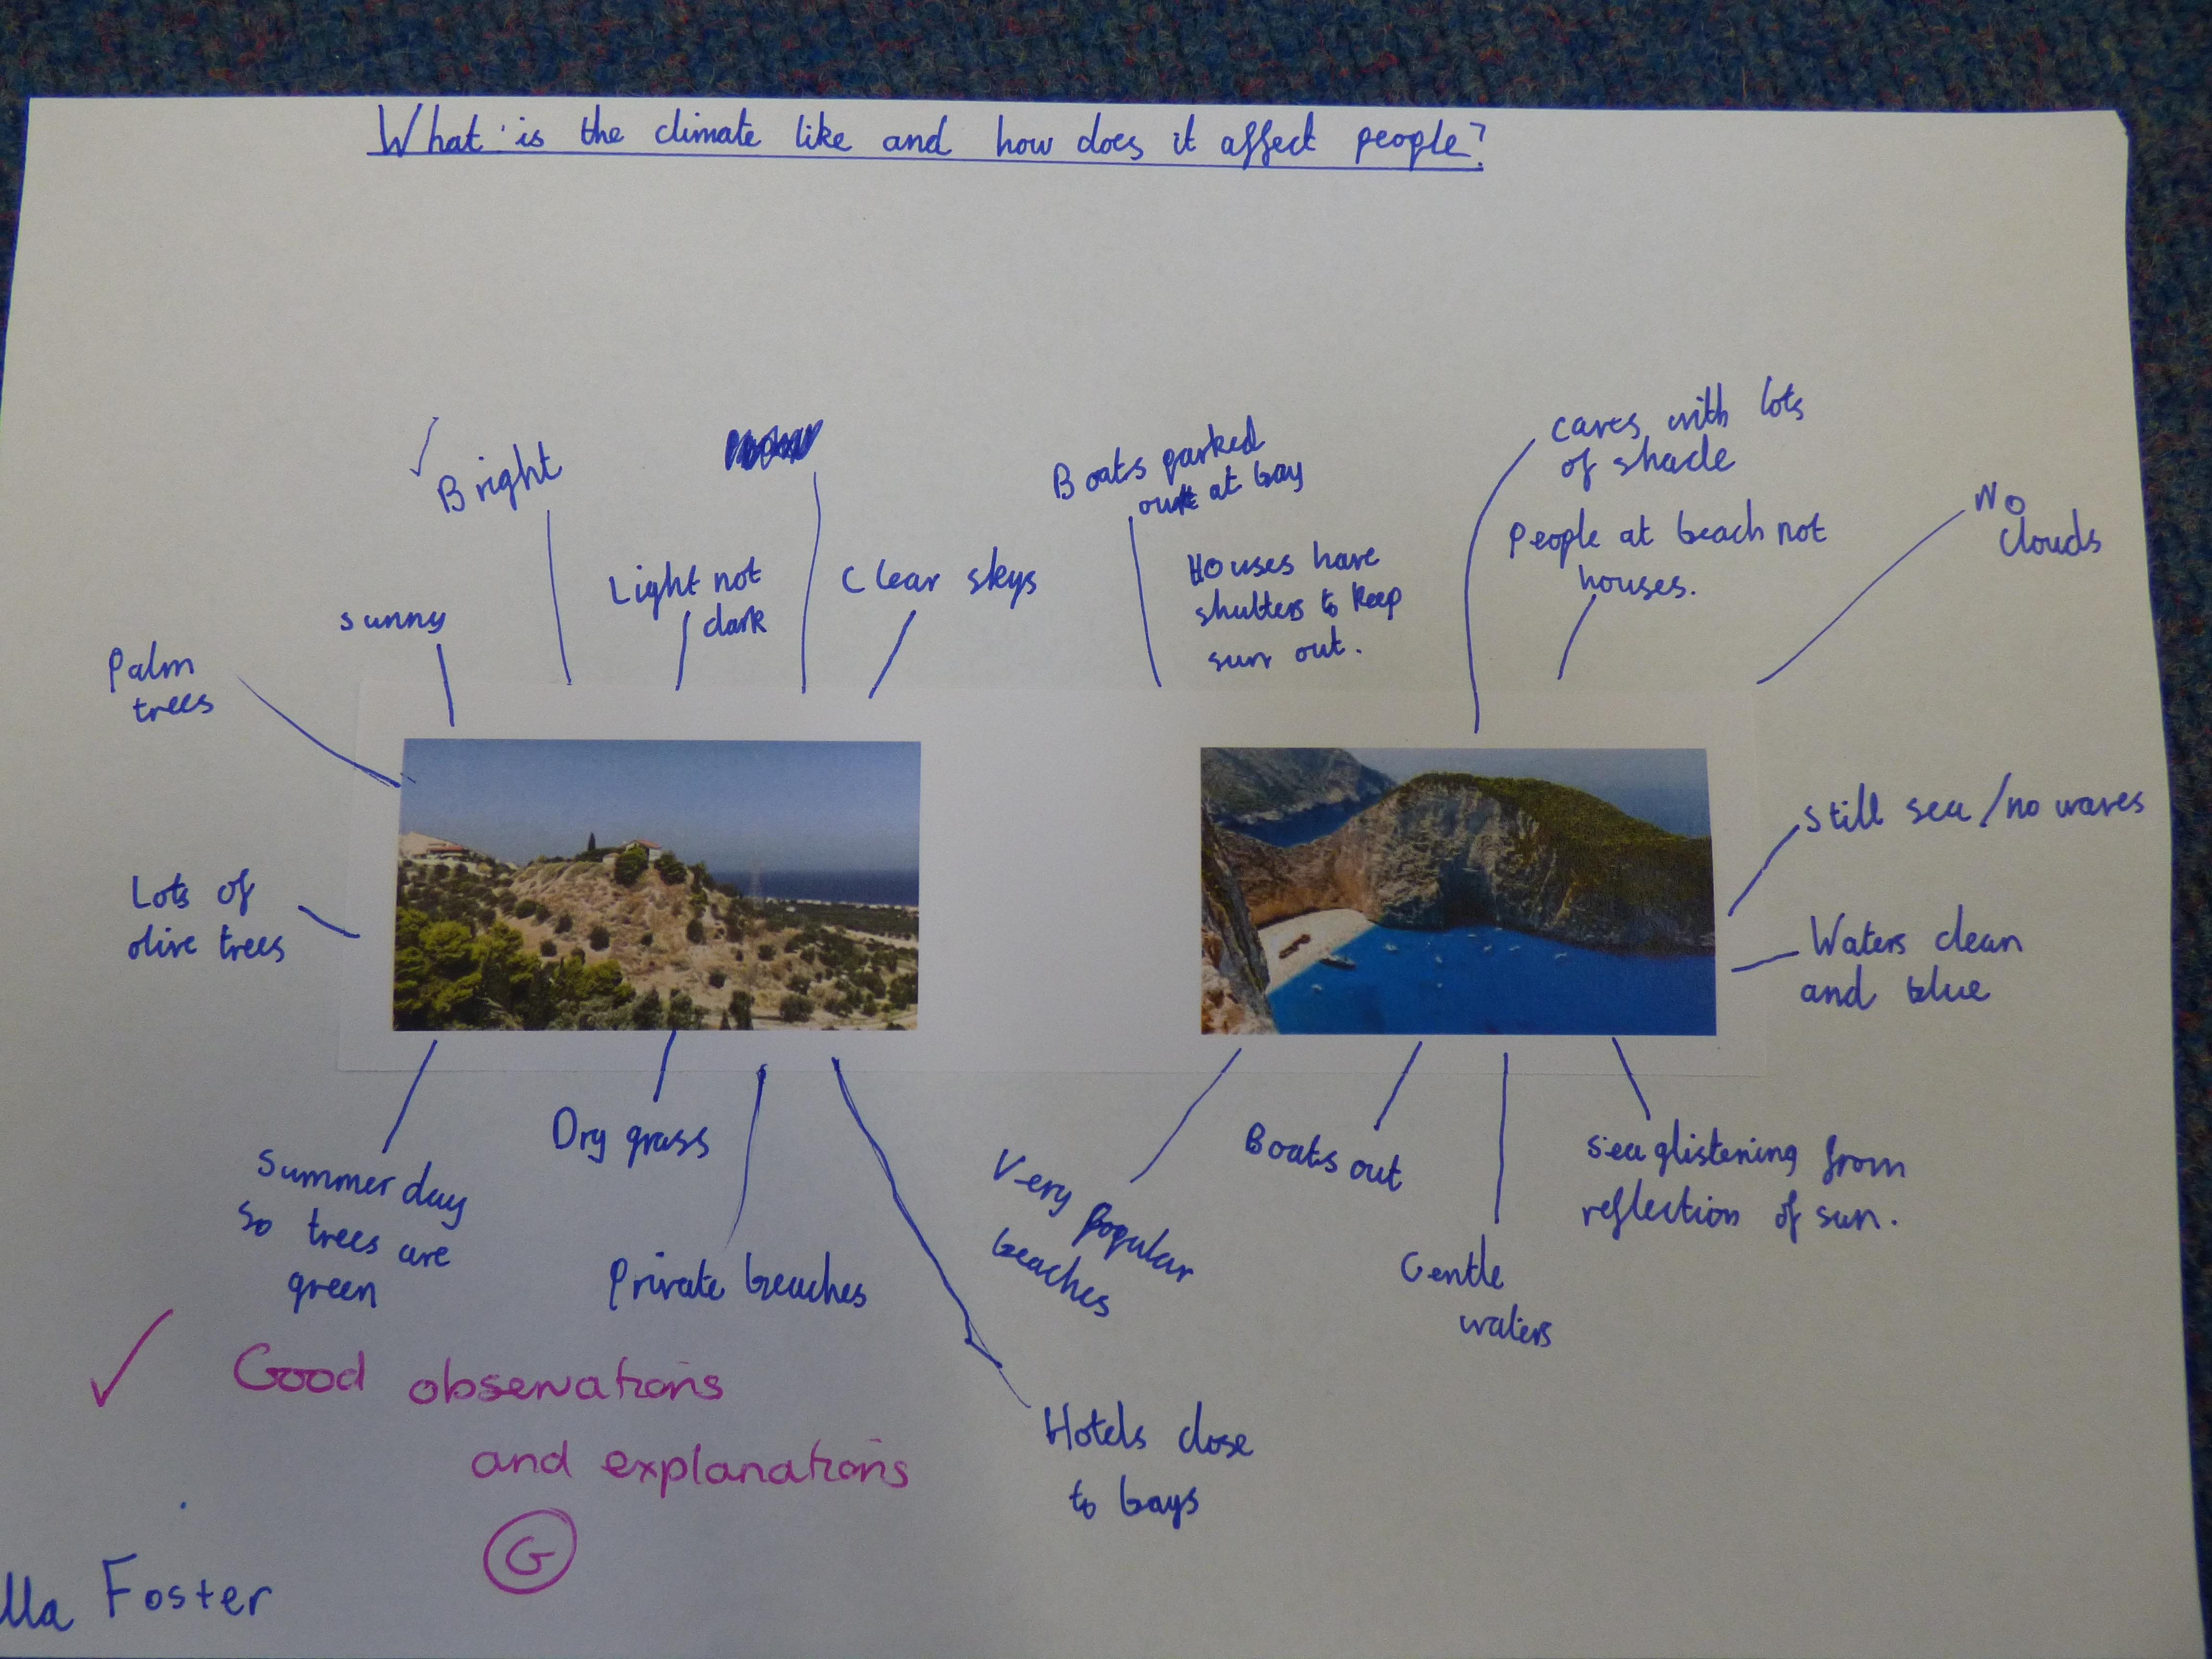 What is the climate like and how does it affect people?
Bright
Light not
dark
Clear skys
sunny
Palm
trees
Lots of
olive trees
Boats parked
out at bay
Houses have
shutters to keep
sun out.
caves with lots
of shade
People at beach not
houses.
No
clouds
Still sea/no waves
Waters clean
and blue
Summer day
so trees are
green
Dry grass
Private beaches
Hotels close
to bays
Very popular
beaches
Boats out
Gentle
waters
Sea glistening from
reflection of sun.
Good observations
and explanations
G
lla Foster